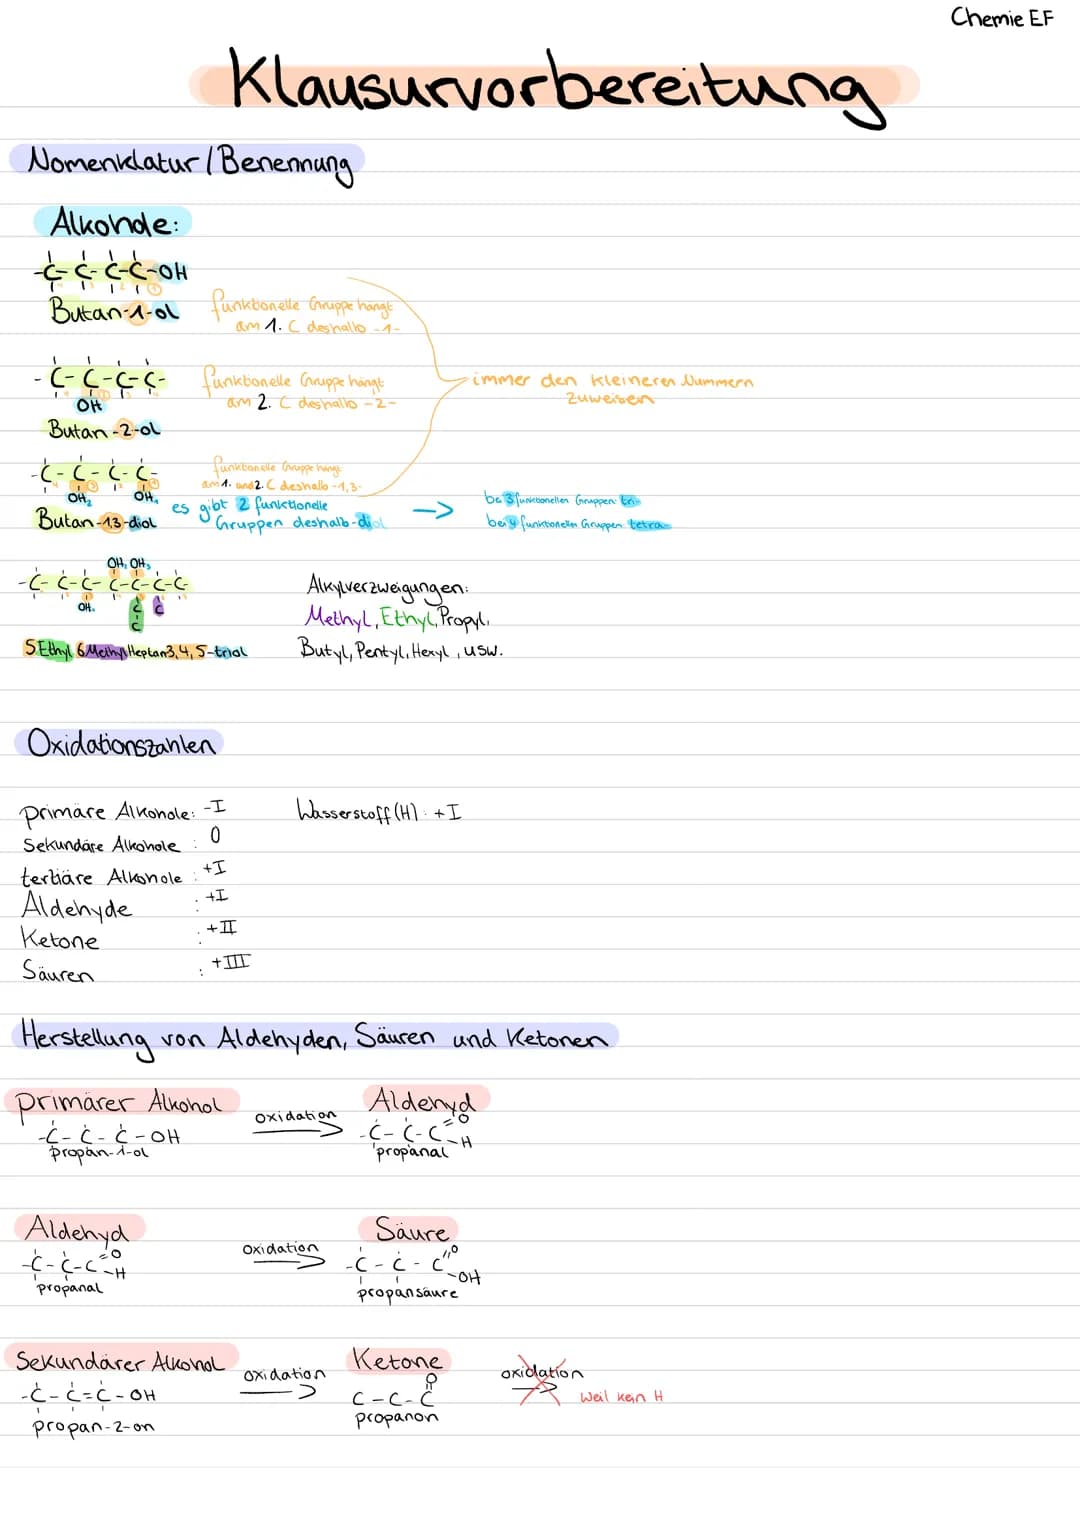 Chemie EF
Klausurvorbereitung
Nomenklatur/Benennung
Alkohole:
-C-C-C-C-OH
Butan-1-ol
funktionelle Gruppe hängt
am 1. C deshalb -1-
-C-C-C-C-
OH
Butan-2-ol
funktionelle Gruppe hängt
am 2. C deshalb -2-
immer den kleineren Nummern
zuweisen
-C-C-C-C-
OH2 OH1
Butan-1,3-diol
funktionelle Gruppe hängt
am 1. und 2. C deshalb -1,3-
es gibt 2 funktionelle
Gruppen deshalb -diol
->
bei 3 funktionellen Gruppen: tri-
bei 4 funktionellen Gruppen tetra-
OH2 OH3
-C-C-C-C-C-C-C-
OH1
C C
C
5Ethyl 6Methyl Heptan3,4,5-triol
Alkylverzweigungen:
Methyl, Ethyl, Propyl,
Butyl, Pentyl, Hexyl, usw.
Oxidationszahlen
primäre Alkohole: -I
Wasserstoff (H): +I
Sekundäre Alkohole: 0
tertiäre Alkohole: +I
Aldehyde: +I
Ketone: +II
Säuren: +III
Herstellung von Aldehyden, Säuren und Ketonen
primärer Alkohol
oxidation
Aldehyd
-C-C-C-OH
-C-C-C=O
-H
propan-1-ol
propanal
Aldehyd
Oxidation
Säure
-C-C-C=O
-H
-C-C-C=O
-OH
propanal
propansäure
Sekundärer Alkohol
oxidation
Ketone
oxidation
O
-C-C=C-OH
C-C-C
weil kein H
propan-2-on
propanon